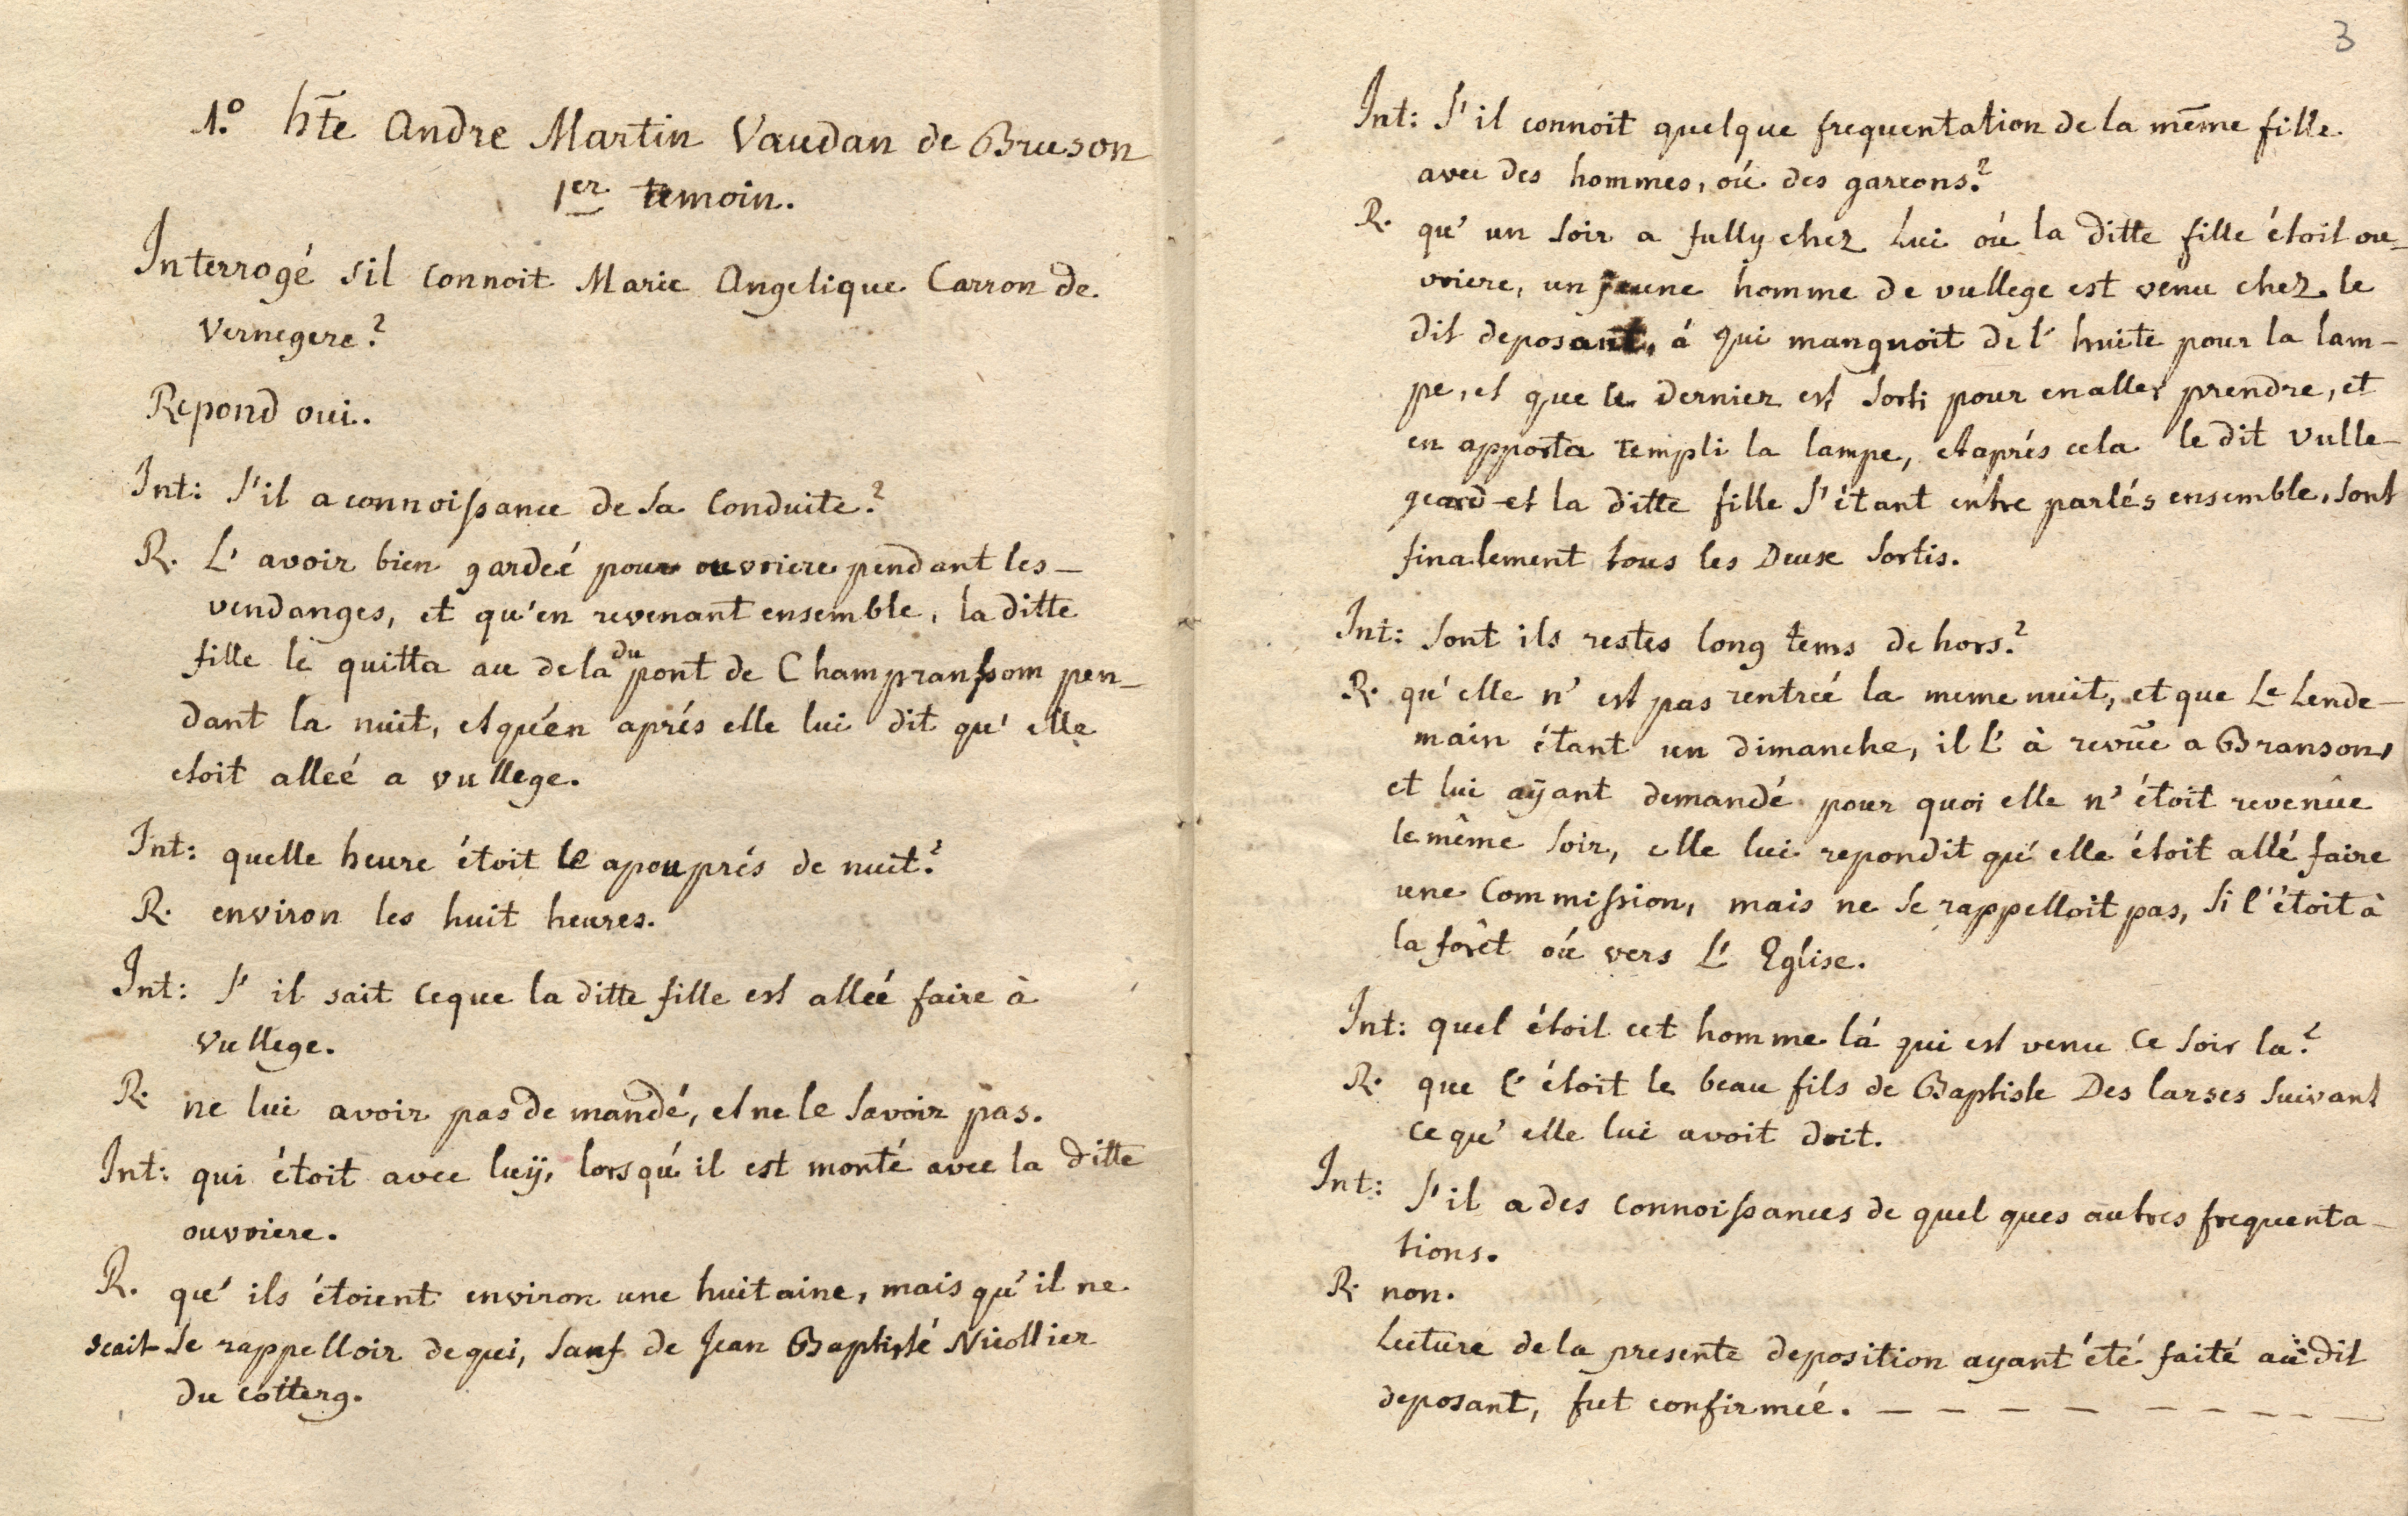 1.º hte Andre Martin Vaudan de Bruson
1er temoin.
Interrogé s'il connoit Marie Angelique Carron de
Vernegere?
Repond oui.
Int: s'il a connoissance de sa Conduite?
R. L'avoir bien gardeé pour ouvriere pendant les-
vendanges, et qu'en revenant ensemble, la ditte
fille le quitta au dela du pont de Champranssom pen-
dant la nuit, et qu'en aprés elle lui dit qu'elle
etoit alleé a vullege.
Int: quelle heure étoit le apouprés de nuit?
R. environ les huit heures.
Int: s'il sait ceque la ditte fille est alleé faire à
Vullege.
R. ne lui avoir pas demandé, et ne le savoir pas.
Int: qui étoit avec luÿ, lorsqu'il est monté avec la ditte
ouvriere.
R. qu'ils étoient environ une huitaine, mais qu'il ne
scait se rappelloir de qui, sauf de Jean Baptisté Nicollier
du cotterg.
3
Int: s'il connoit quelque frequentation de la mēme fille
avec des hommes, oú des garcons?
R. qu'un soir a fully chez Lui oú la ditte fille étoit ou-
vriere, un jeune homme de vullege est venu chez le
dit deposant, á qui manquoit de l'huile pour la lam-
pe, et que le dernier est sorti pour en aller prendre, et
en apporta rempli la lampe, et aprés cela le dit vulle-
geard et la ditte fille s'étant entre parlés ensemble, sont
finalement tous les Deux sortis.
Int: sont ils restes long tems de hors?
R. qu'elle n'est pas rentreé la meme nuit, et que Le Lende-
main étant un dimanche, il l'à revūe a Branson,
et lui aÿant demandé pour quoi elle n'étoit revenûe
le même soir, elle lui repondit qu'elle étoit allé faire
une Commission, mais ne se rappelloit pas, si c'étoit à
la forêt oú vers L'Eglise.
Int: quel étoit cet homme lá qui est venu ce soir la?
R. que c'étoit le beau fils de Baptiste Des larses suivant
ce qu'elle lui avoit doit.
Int: s'il a des connoissances de quelques autres frequenta-
tions.
R. non.
Lecture de la presente deposition ayant été faité au dit
deposant, fut confirmeé. - - - - - - - - -